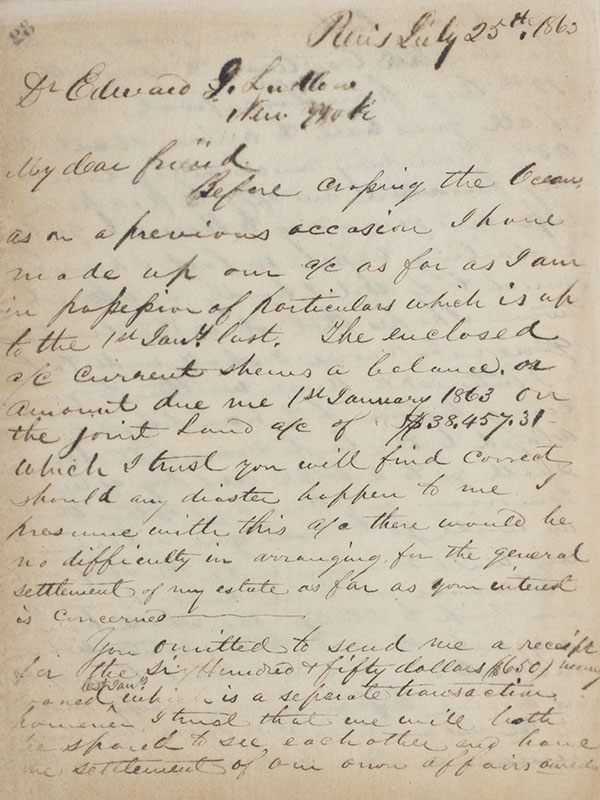 28
Paris July 25th. 1863
Dr Edward G. Ludlow
New York
My dear friend
Before crossing the Ocean,
as on a previous occasion I have
made up our a/c as far as I am
in possession of particulars which is up
to the 1st Jany. last. The enclosed
a/c current shews a balance, or
amount due me 1st January 1863 on
the joint Land a/c of $38.457.31
which I trust you will find correct
should any disaster happen to me I
presume with this a/c there would be
no difficulty in arranging for the general
settlement of my estate as far as your interest
is concerned
You omitted to send me a receipt
for the six Hundred & fifty dollars ($650) money
last Jany.
loaned, which is a separate transaction.
however I trust that we will both
be spared to see each other and have
the settlement of our own affairs